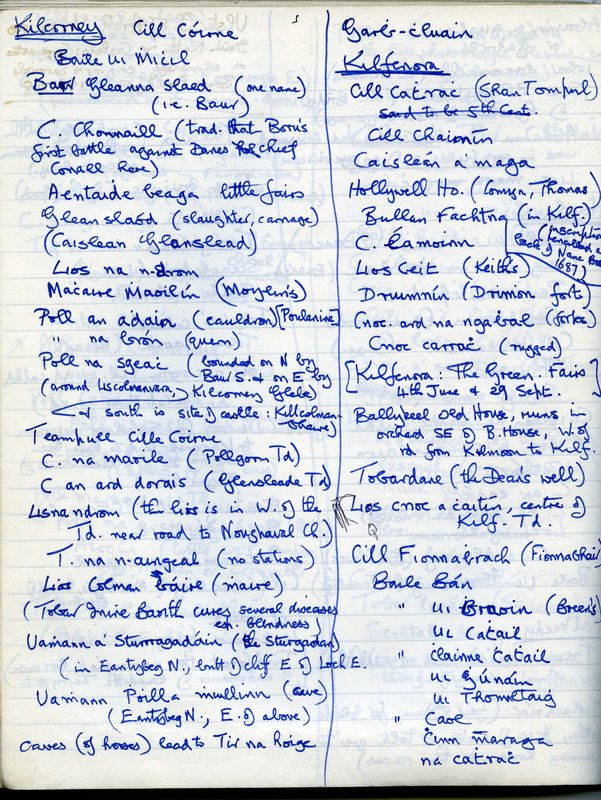 Kilcorney Cill Cóirne
Baile Uí Mícíl
Gleanna slaed (one name)
(i.e. Baur)
C. Chonnaill (trad. that Boru's
first battle against Danes chief
Conall here)
Aentaide beaga little fairs
C Glean slaod (slaughter, carnage)
(Caislean Glanslead)
Lios na n-drom
Macaire Maoilín (Moylin's)
Poll an adain (cauldron) [Poulanine]
" na brón (quern)
Poll na sgeac (bounded on N by
Baur S. & on E by
(around Liscolmanvara,) Kilcorney Glebe)
& south is site of castle: Killcolman-
Teampull Cille Cóirne
C. na maoile (Pollgorm Td)
C an ard dorais (Glensleade Td)
Lisnandrom (the lios is in W. of the
Td. near road to Noughaval Ch.)
T. na n-aingeal (no stations)
Lios Colman báire (maire)
(Tobar Inine Baoith cures several diseases
esp. blindness)
Uamann a' Sturragadáin (the Sturgadan)
(in Eantybeg N., butt of cliff E of Loch E.
Uamann Poilla muilinn (cave)
(Eantybeg N., E. of above)
caves (of horses) lead to Tír na hóige
5
Garb-cluain
Kilfenora
Cill Catrac (Shan Tompul)
said to be 5th Cent.
Cill Chaimín
Caisleán a' maga
Hollywell Ho. (Comyn, Thomas)
Bullan Fachtna (in Kilf.)
(inscription
1687)
C. Éamoinn
Lios Ceit (Keith's)
Druimnín (Drimion forts)
Cnoc. ard na ngabal (forks)
Cnoc carrac (rugged)
[Kilfenora: The Green. Fairs
4th June & 29 Sept.
Ballykeel Old House, ruins in
orchard SE of B. House, W. of
rd from Kilmoon to Kilf.
Tobardane (the Dean's well)
Lios cnoc a' caitín, centre of
Kilf. Td.
Cill Fionnabrach (Fionnabhair)
Baile Bán
" Uí Braoin (Breen's)
Uí Catail
" clainne Catail
Uí gúnáin
Uí Thomltaig
" Caol
Cinn maraga
na catrac